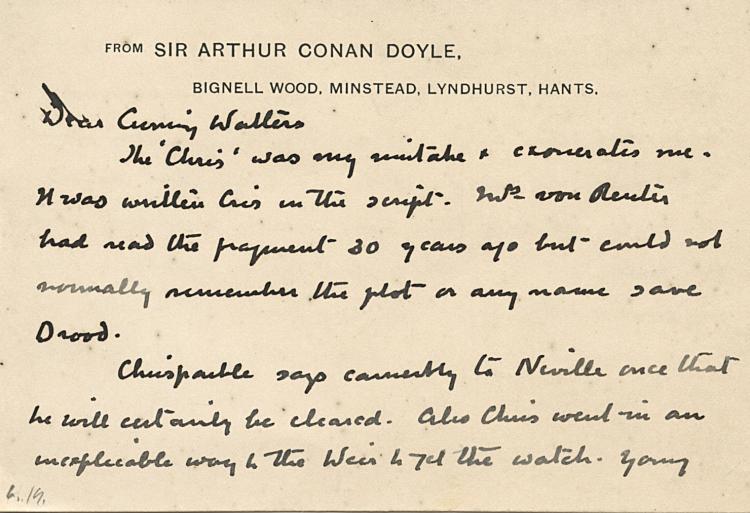 FROM SIR ARTHUR CONAN DOYLE,
BIGNELL WOOD, MINSTEAD, LYNDHURST, HANTS.
Dear Cuming Walters
The 'Chris' was my mistake & exonerates me.
It was written Cris in the script. Mrs von Reuter
had read the fragment 30 years ago but could not
normally remember the plot or any name save
Drood.
Chrisparkle says earnestly to Neville once that
he will certainly be cleared. Also Chris went in an
inexplicable way to the Weir to get the watch. Young